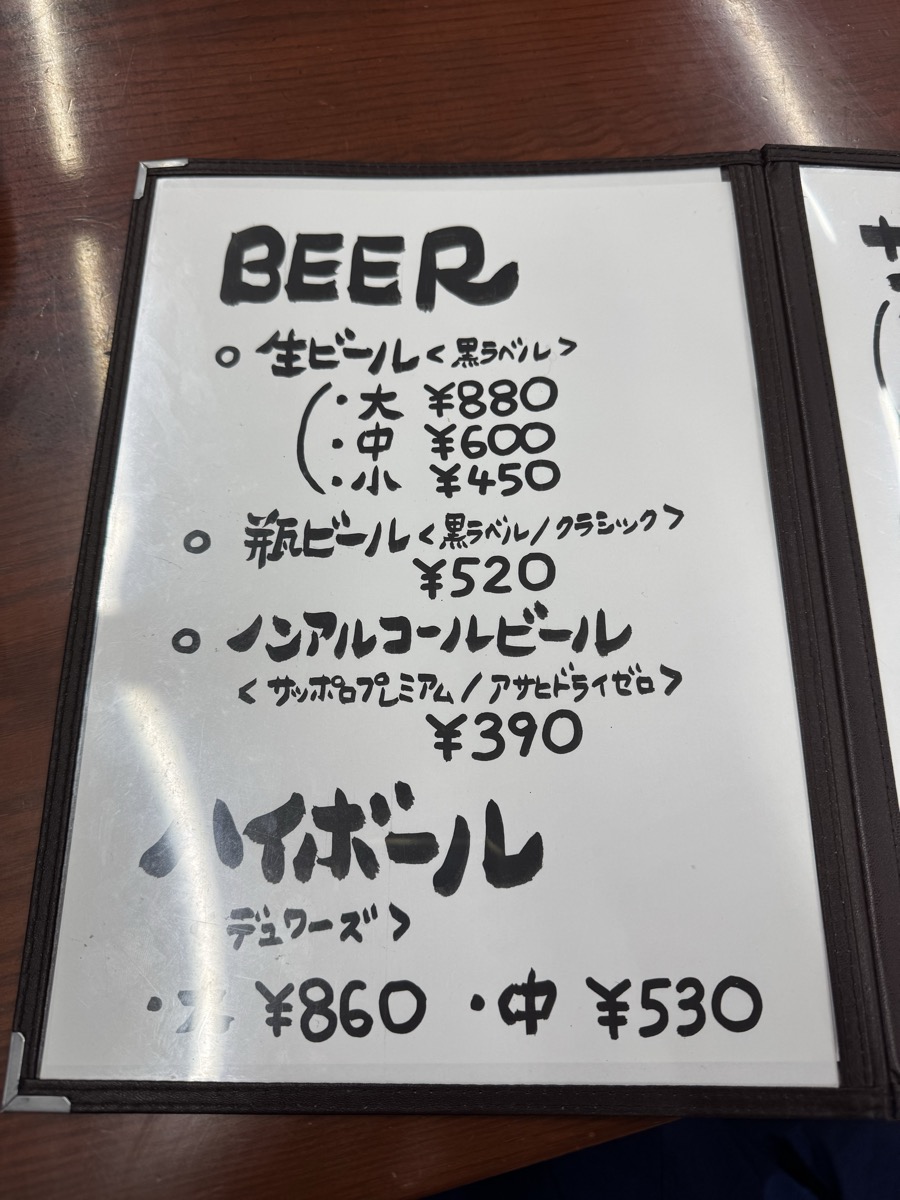 BEER
○ 生ビール<黒ラベル>
・大 ¥880
・中 ¥600
・小 ¥450
○ 瓶ビール<黒ラベル/クラシック>
¥520
○ ノンアルコールビール
<サッポロプレミアム/アサヒドライゼロ>
¥390
ハイボール
デュワーズ>
・大 ¥860 ・中 ¥530